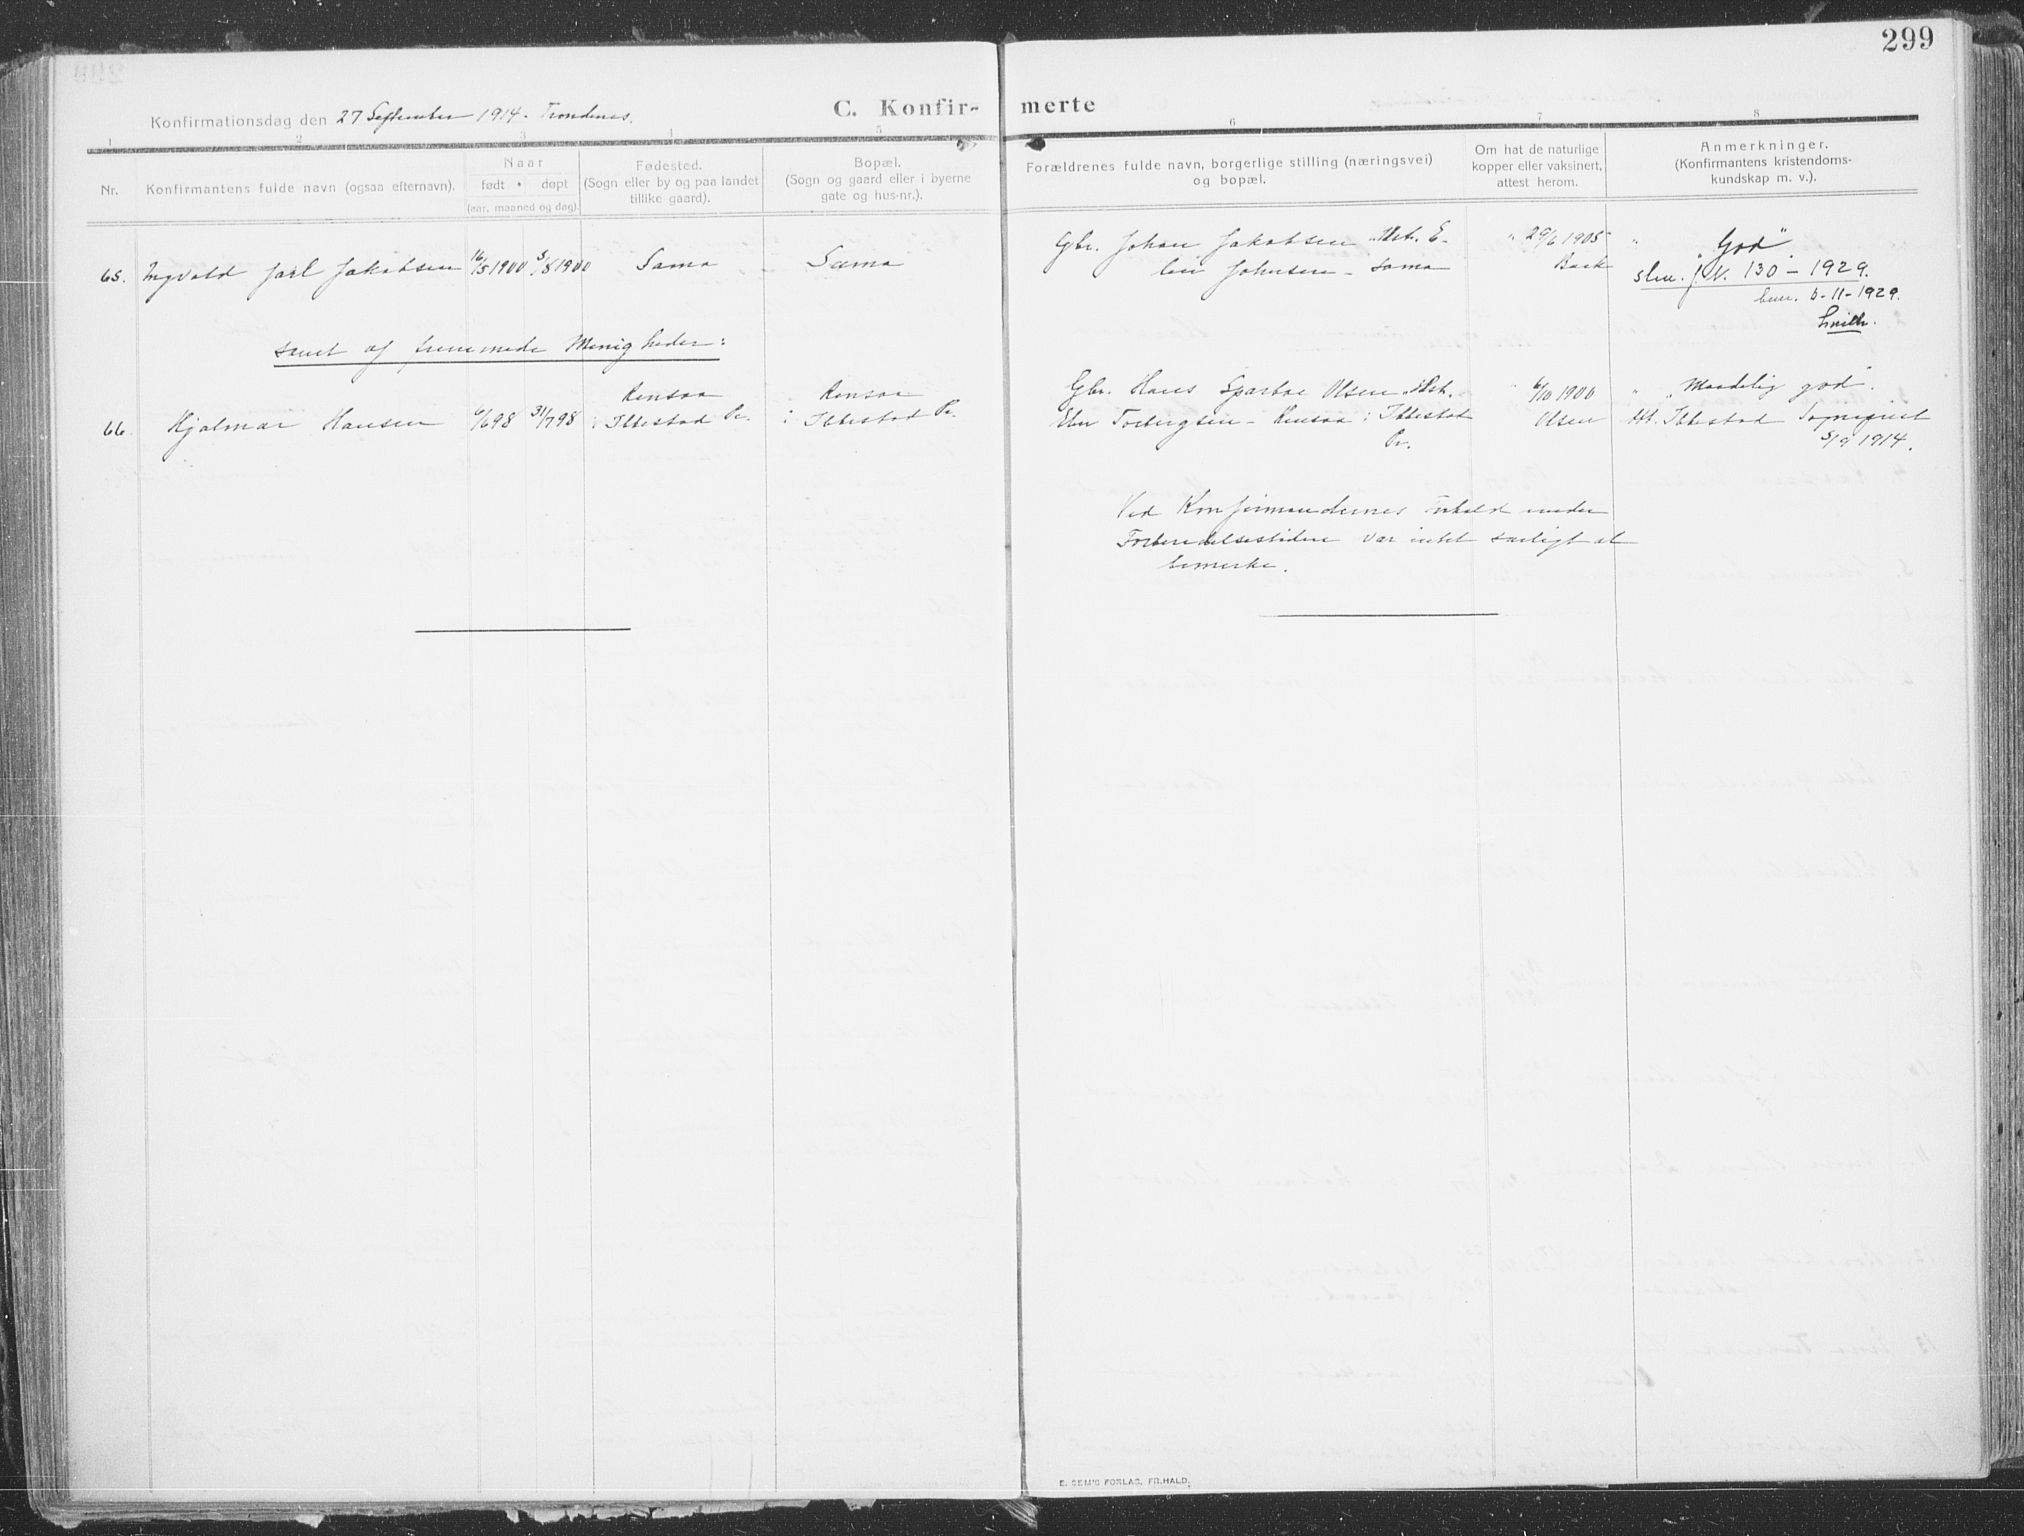 299
Konfirmationsdag den 27 September 1914. Trondenes.
C. Konfir- merte
1 2 3 4 5 6 7 8
Nr.
Konfirmantens fulde navn (ogsaa efternavn).
Naar
født • døpt
(aar, maaned og dag).
Fødested.
(Sogn eller by og paa landet
tillike gaard).
Bopæl.
(Sogn og gaard eller i byerne
gate og hus-nr.).
Forældrenes fulde navn, borgerlige stilling (næringsvei)
og bopæl.
Om hat de naturlige
kopper eller vaksinert,
attest herom.
Anmerkninger.
(Konfirmantens kristendoms-
kundskap m. v.).
65. Ingvald Jarl Jakobsen 16/5 1900 5/8 1900 Sama Sama
Gbr. Johan Jakobsen . Hst. E-
len Johnsen - Sama
" 29/6 1905
Back
" "God".
slm. J. N. 130 - 1929.
6-11-1929.
Smith.
samt af fremmede Menigheder:
66. Hjalmar Hansen 6/6 98 31/7 98
Rensaa
i Ibbestad Pr.
Rensaa
i Ibbestad Pr.
Gbr. Hans Sparboe Olsen . Hst.
Torbergsen - Rensaa i Ibbestad
Pr.
" 6/10 1900
Olsen
" "Maadelig god".
Att. Ibbestad Sogneprest
5/9 1914.
Ved Konfirmandernes Forhold under
Forberedelsestiden var intet særligt at
bemerke.
E. SEM'S FORLAG, FR.HALD.